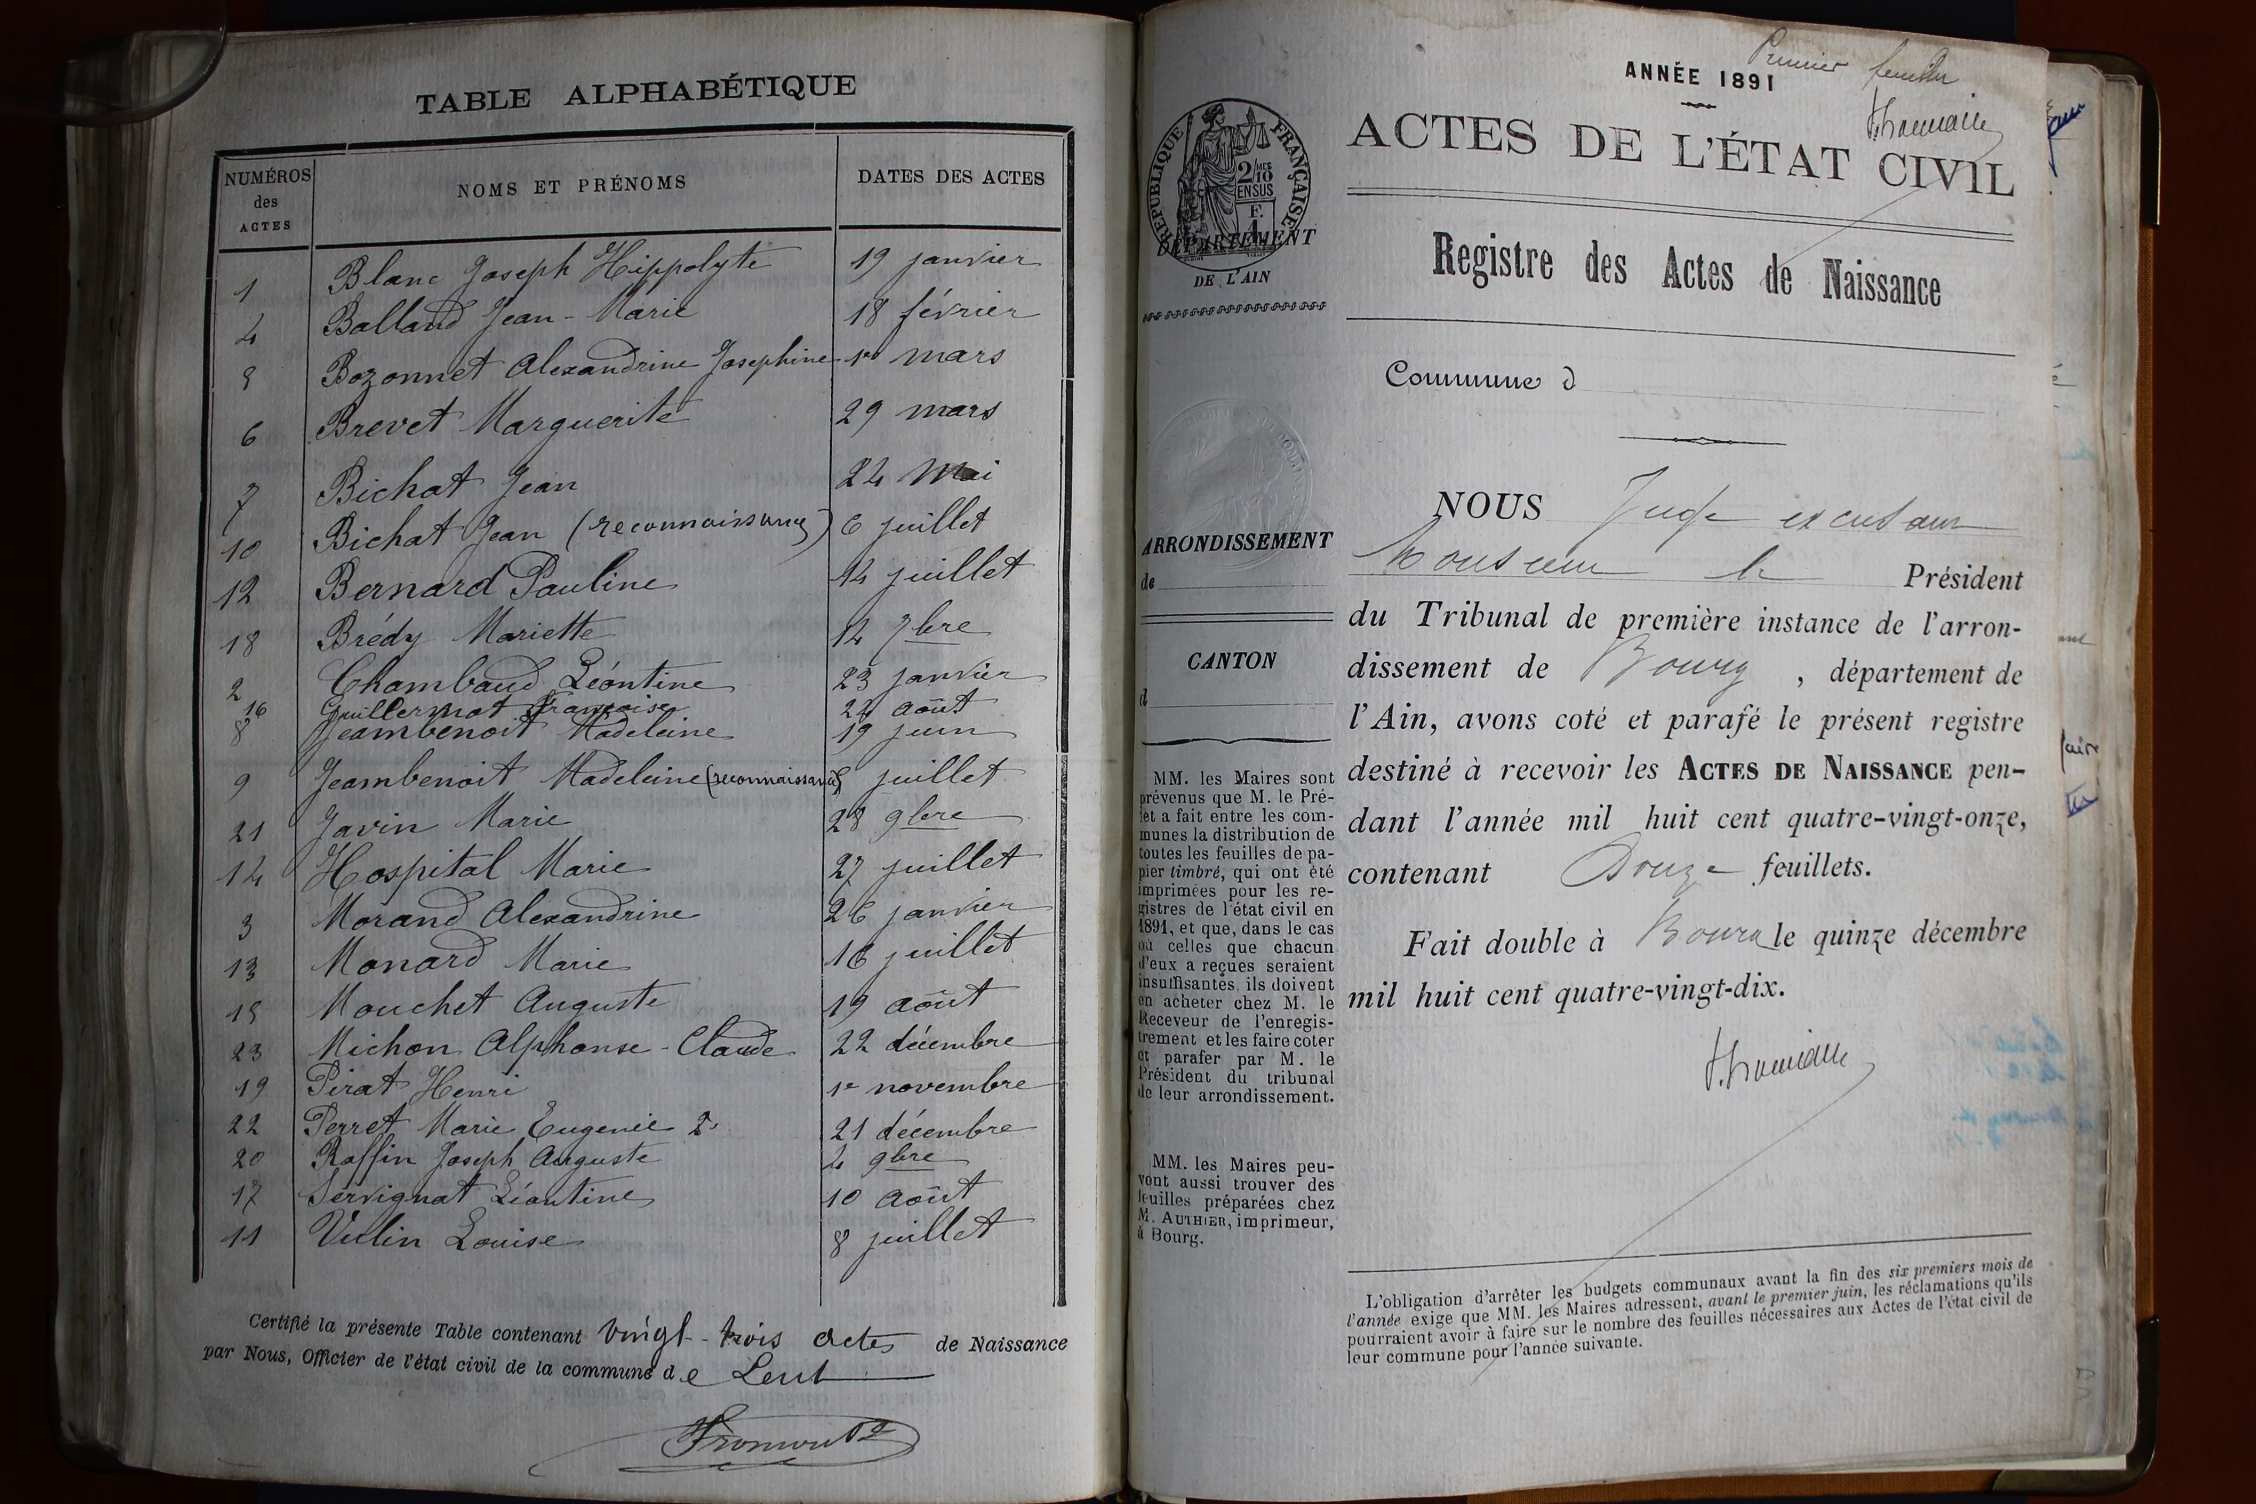 TABLE ALPHABÉTIQUE
NUMÉROS des ACTES NOMS ET PRÉNOMS DATES DES ACTES
1 Blanc Joseph Hippolyte 19 janvier
4 Balland Jean-Marie 18 février
5 Bozonnet Alexandrine Josephine 1er mars
6 Brevet Marguerite 29 mars
7 Bichat Jean 24 Mai
10 Bichat Jean (reconnaissance) 6 juillet
12 Bernard Pauline 14 juillet
18 Brédy Mariette 14 7bre
2 Chambaud Léontine 23 janvier
16 Guillermot Françoise 24 août
8 Jeambenoit Madeleine 19 juin
9 Jeambenoit Madeleine (reconnaissance) juillet
21 Javin Marie 28 9bre
14 Hospital Marie 27 juillet
3 Morand Alexandrine 26 janvier
13 Monard Marie 16 juillet
15 Mouchet Auguste 19 août
23 Michon Alphonse-Claude 22 décembre
19 Pirat Henri 1er novembre
22 Perret Marie Eugenie 21 décembre
20 Raffin Joseph Auguste 4 9bre
17 Servignat Léontine 10 août
11 Vulin Louise 8 juillet
Certifié la présente Table contenant vingt-trois actes de Naissance
par Nous, Officier de l'état civil de la commune de Lent
ANNÉE 1891
Premier feuillet
ACTES DE L'ÉTAT CIVIL
RÉPUBLIQUE FRANÇAISE
2/10 MES
EN SUS
F.
1
DÉPARTEMENT
DE L'AIN
Registre des Actes de Naissance
Commune d
NOUS Juge excusant
Monsieur le Président
ARRONDISSEMENT
de
du Tribunal de première instance de l'arron-
dissement de Bourg, département de
l'Ain, avons coté et parafé le présent registre
destiné à recevoir les ACTES DE NAISSANCE pen-
dant l'année mil huit cent quatre-vingt-onze,
contenant Douze feuillets.
Fait double à Bourg le quinze décembre
mil huit cent quatre-vingt-dix.
CANTON
d
MM. les Maires sont
prévenus que M. le Pré-
fet a fait entre les com-
munes la distribution de
toutes les feuilles de pa-
pier timbré, qui ont été
imprimées pour les re-
gistres de l'état civil en
1891, et que, dans le cas
où celles que chacun
d'eux a reçues seraient
insuffisantes, ils doivent
en acheter chez M. le
Receveur de l'enregis-
trement et les faire coter
et parafer par M. le
Président du tribunal
de leur arrondissement.
MM. les Maires peu-
vent aussi trouver des
feuilles préparées chez
M. AUTHIER, imprimeur,
à Bourg.
L'obligation d'arrêter les budgets communaux avant la fin des six premiers mois de
l'année exige que MM. les Maires adressent, avant le premier juin, les réclamations qu'ils
pourraient avoir à faire sur le nombre des feuilles nécessaires aux Actes de l'état civil de
leur commune pour l'année suivante.